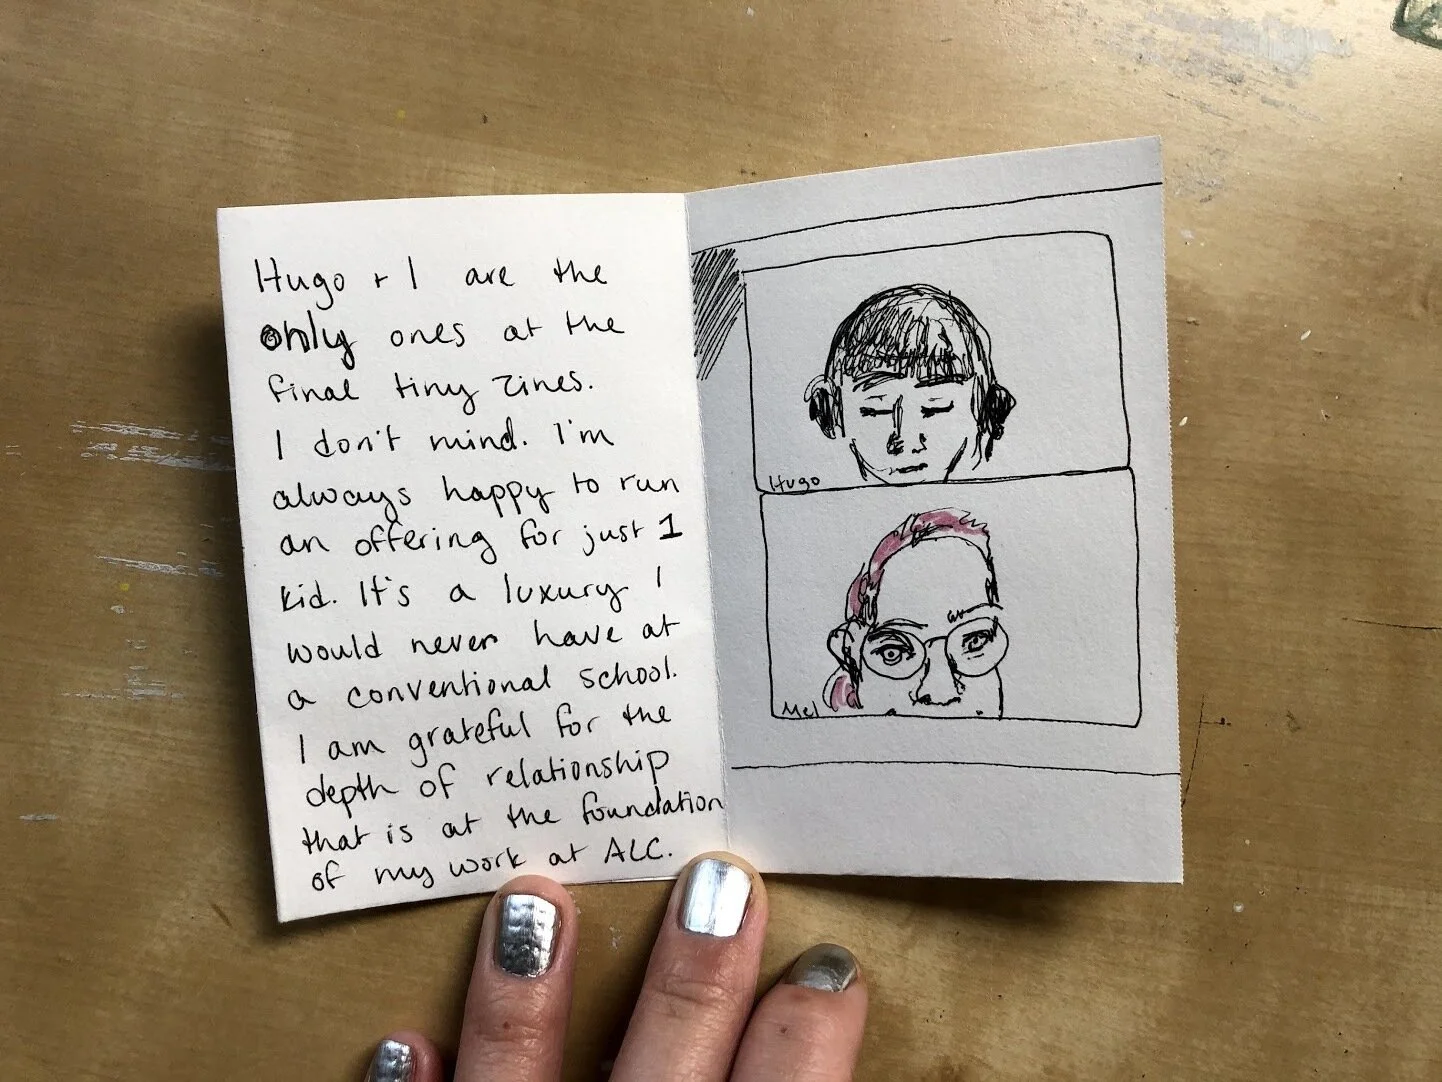 Hugo + I are the
only ones at the
final tiny zines.
I don't mind. I'm
always happy to run
an offering for just 1
kid. It's a luxury I
would never have at
a conventional school.
I am grateful for the
depth of relationship
that is at the foundation
of my work at ALC.
Hugo
Mel